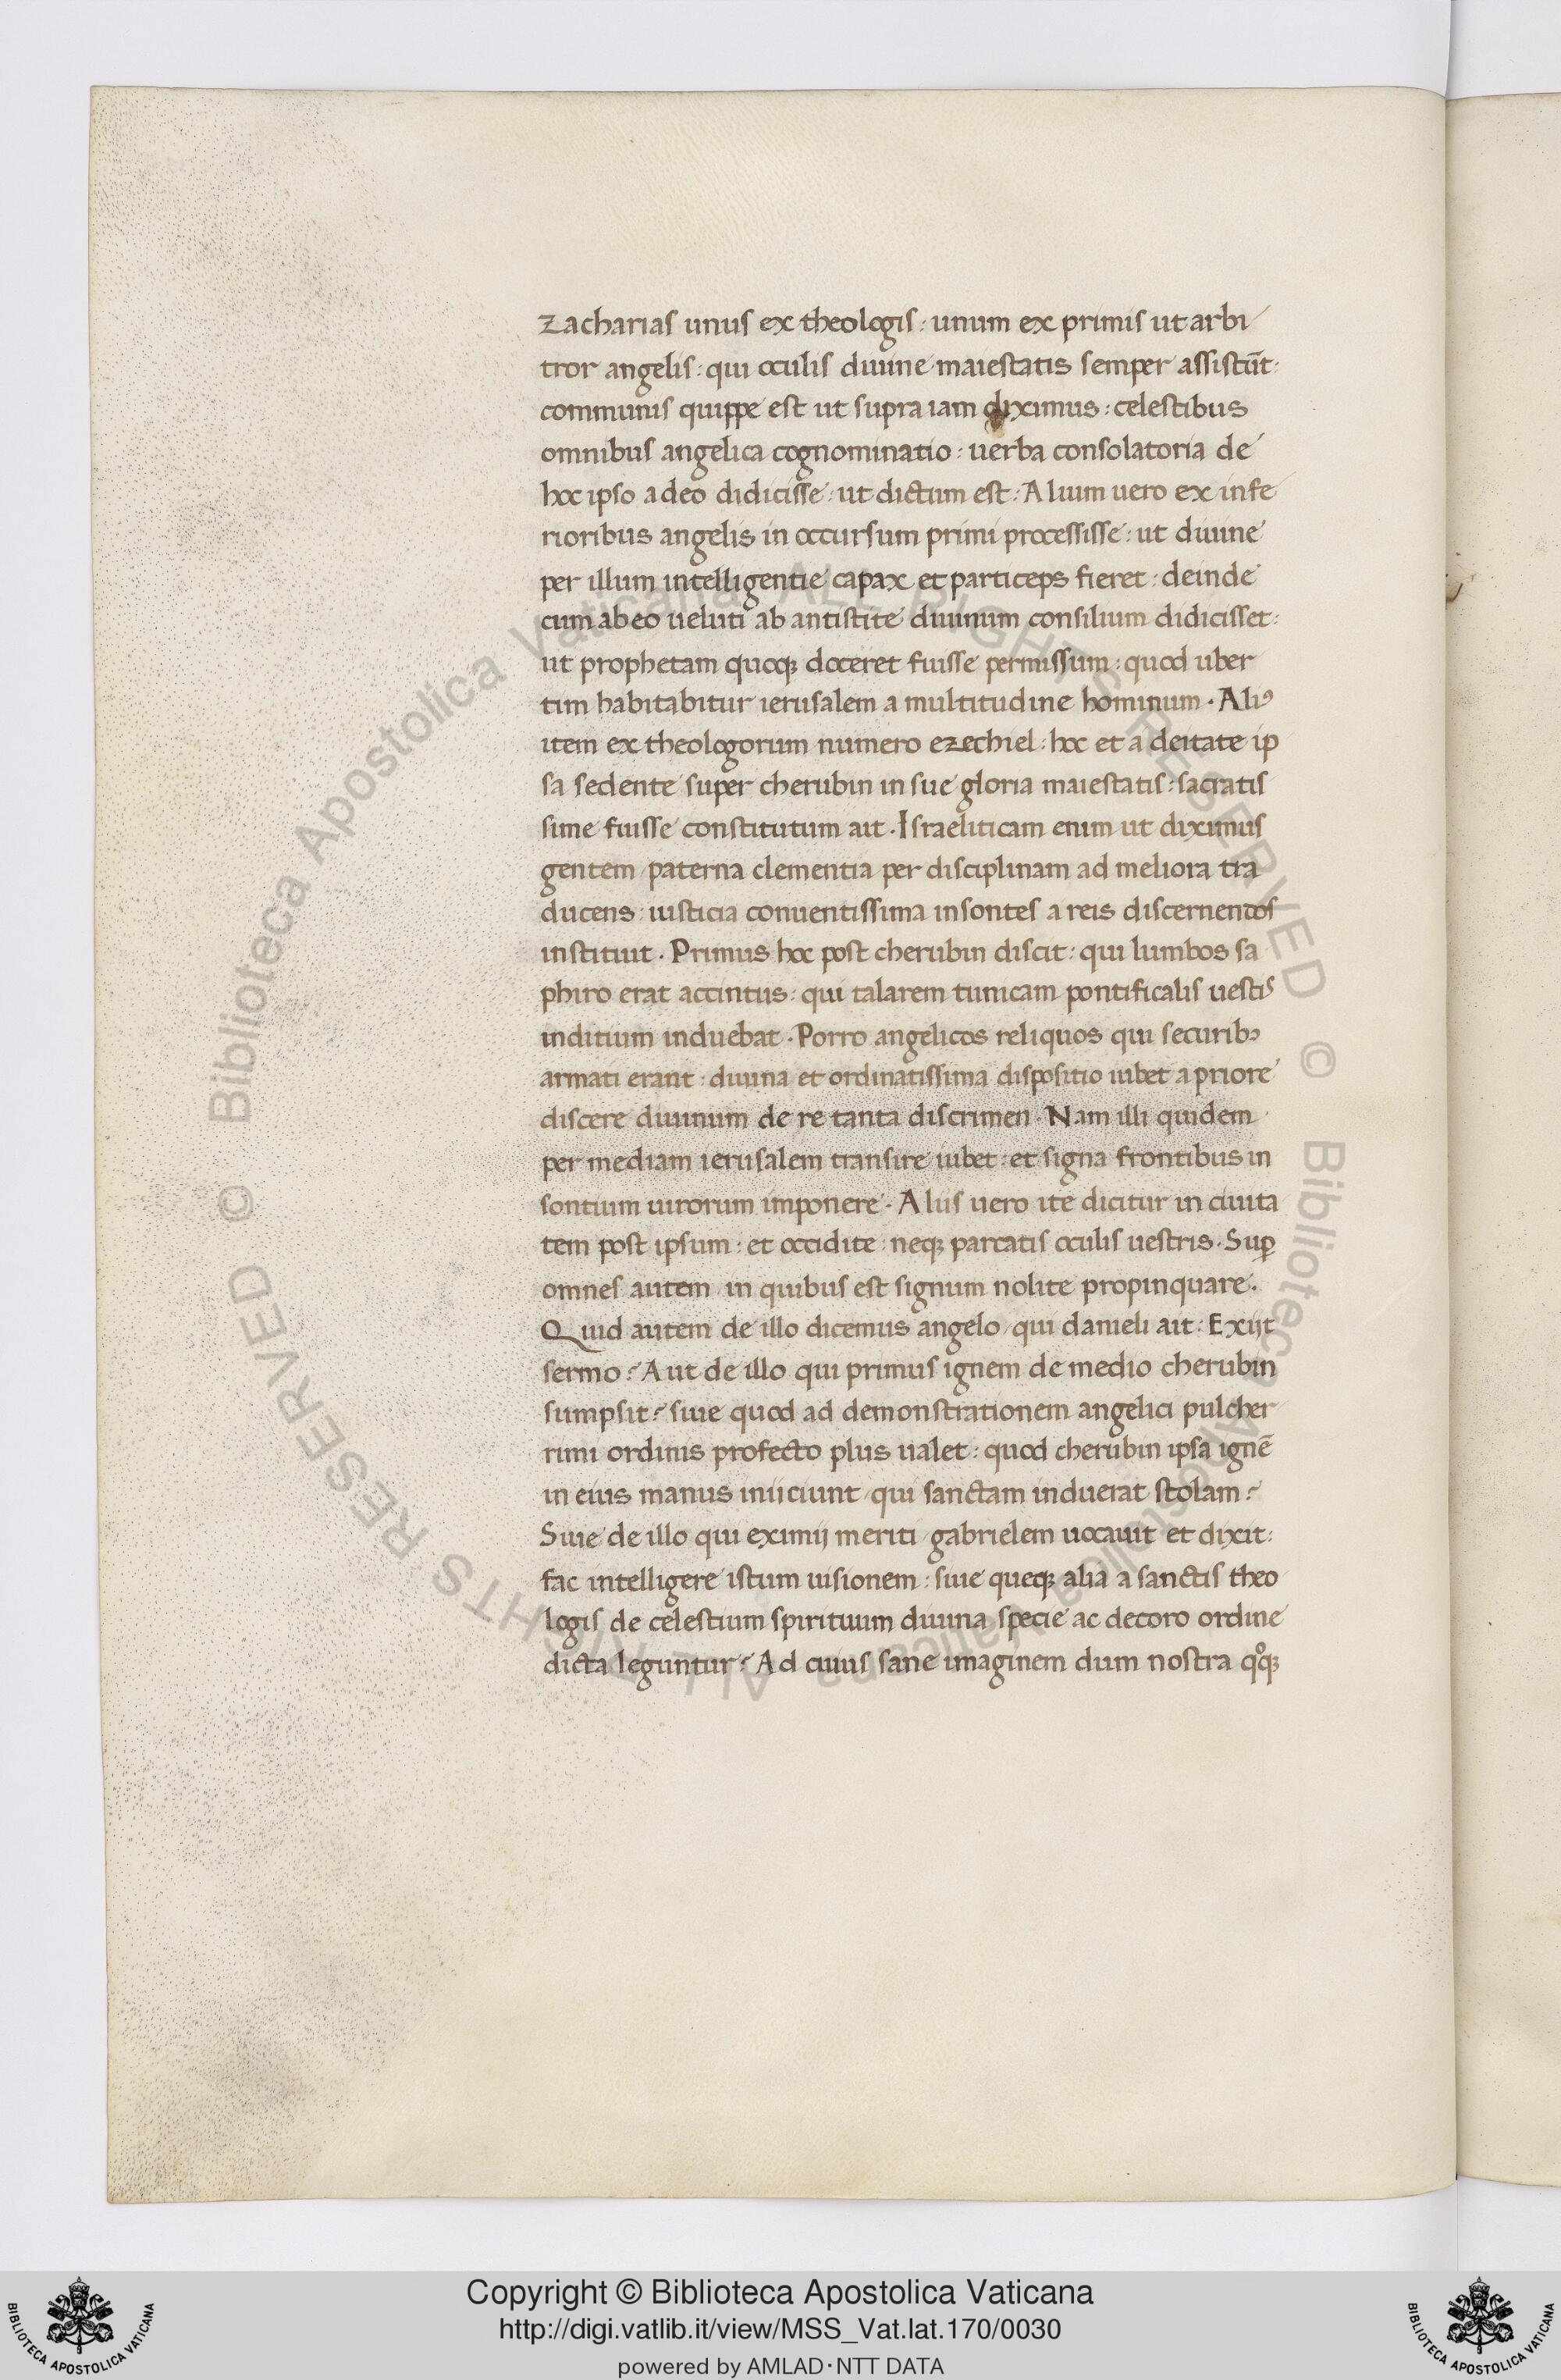 Zacharias unus ex theologis: unum ex primis ut arbi
tror angelis: qui oculis diuine maiestatis semper assistūt:
communis quippe est ut supra iam diximus: celestibus
omnibus angelica cognominatio: uerba consolatoria de
hoc ipso a deo didicisse: ut dictum est: Alium uero ex infe
rioribus angelis in occursum primi processisse: ut diuine
per illum intelligentie capax et particeps fieret: deinde
cum ab eo ueluti ab antistite diuinum consilium didicisset:
ut prophetam quoqꝫ doceret fuisse permissum: quod uber
tim habitabitur ierusalem a multitudine hominum. Aliꝰ
item ex theologorum numero ezechiel: hoc et a deitate ip
sa sedente super cherubin in sue gloria maiestatis: sacratis
sime fuisse constitutum ait. Israeliticam enim ut diximus
gentem paterna clementia per disciplinam ad meliora tra
ducens: iusticia conuentissima insontes a reis discernendos
instituit. Primus hoc post cherubin discit: qui lumbos sa
phiro erat accintus: qui talarem tunicam pontificalis uestis
inditium induebat. Porro angelicos reliquos qui securibꝫ
armati erant: diuina et ordinatissima dispositio iubet a priore
discere diuinum de re tanta discrimen. Nam illi quidem
per mediam ierusalem transire iubet: et signa frontibus in
sontium uirorum imponere. Aliis uero ite dicitur in ciuita
tem post ipsum: et occidite: neqꝫ parcatis oculis uestris. Suꝑ
omnes autem in quibus est signum nolite propinquare.
Quid autem de illo dicemus angelo, qui danieli ait: Exijt
sermo? Aut de illo qui primus ignem de medio cherubin
sumpsit? siue quod ad demonstrationem angelici pulcher
rimi ordinis profecto plus ualet: quod cherubin ipsa ignē
in eius manus iniiciunt, qui sanctam induerat stolam?
Siue de illo qui eximij meriti gabrielem uocauit et dixit:
fac intelligere istum uisionem: siue queqꝫ alia a sanctis theo
logis de celestium spirituum diuina specie ac decoro ordine
dicta leguntur? Ad cuius sane imaginem dum nostra qͦqꝫ
© Biblioteca Apostolica Vaticana ALL RIGHTS RESERVED © Biblioteca Apostolica Vaticana ALL RIGHTS RESERVED
Copyright © Biblioteca Apostolica Vaticana
http://digi.vatlib.it/view/MSS_Vat.lat.170/0030
powered by AMLAD·NTT DATA
BIBLIOTECA APOSTOLICA VATICANA
BIBLIOTECA APOSTOLICA VATICANA